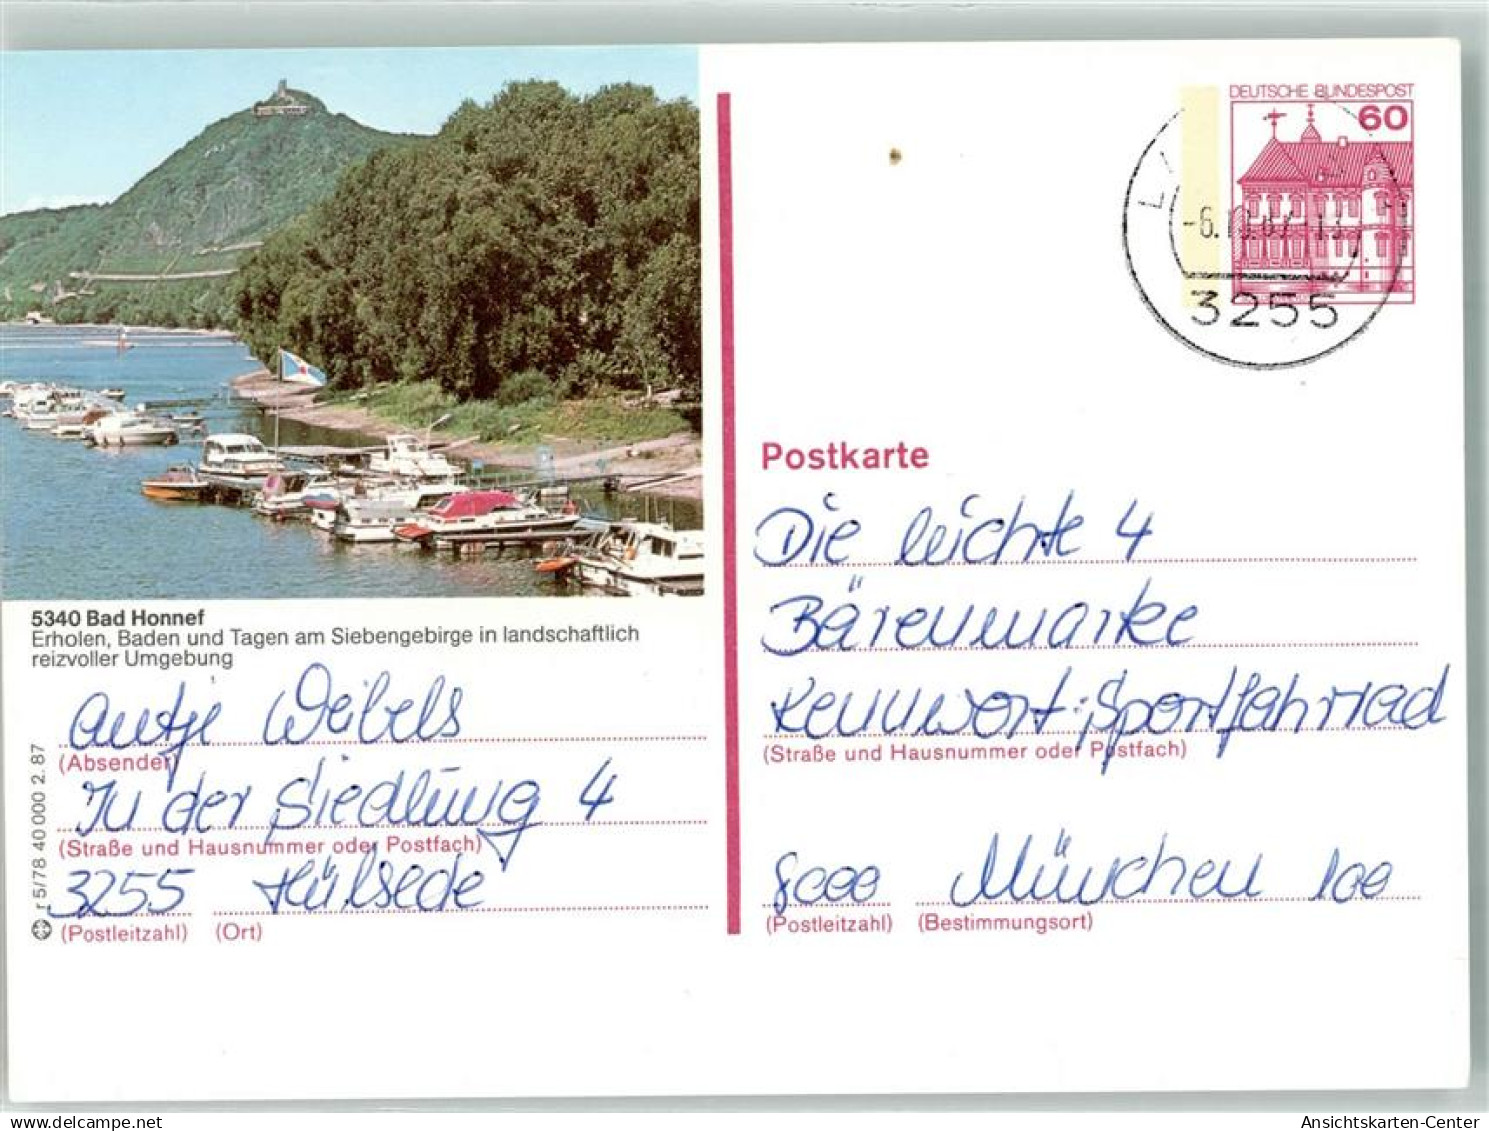 DEUTSCHE BUNDESPOST
60
-6.10.87-13
3255
Postkarte
Die leichte 4
Bärenmarke
Kennwort: Sportfahrrad
(Straße und Hausnummer oder Postfach)
8000 München 100
(Postleitzahl) (Bestimmungsort)
5340 Bad Honnef
Erholen, Baden und Tagen am Siebengebirge in landschaftlich
reizvoller Umgebung
Antje Weibels
(Absender)
In der Siedlung 4
(Straße und Hausnummer oder Postfach)
3255 Hülsede
(Postleitzahl) (Ort)
r 5/78 40 000 2. 87
Ansichtskarten-Center